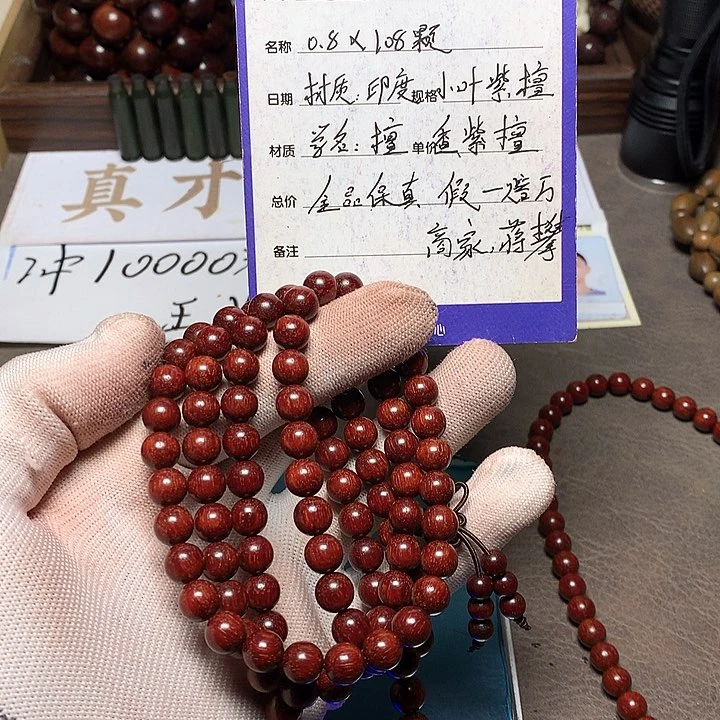 名称 0.8×108颗
日期 材质:印度 规格 小叶紫檀
材质 学名:檀 单价 香紫檀
总价 全品保真 假一赔万
备注 商家,蒋攀
真才
冲10000
王
心